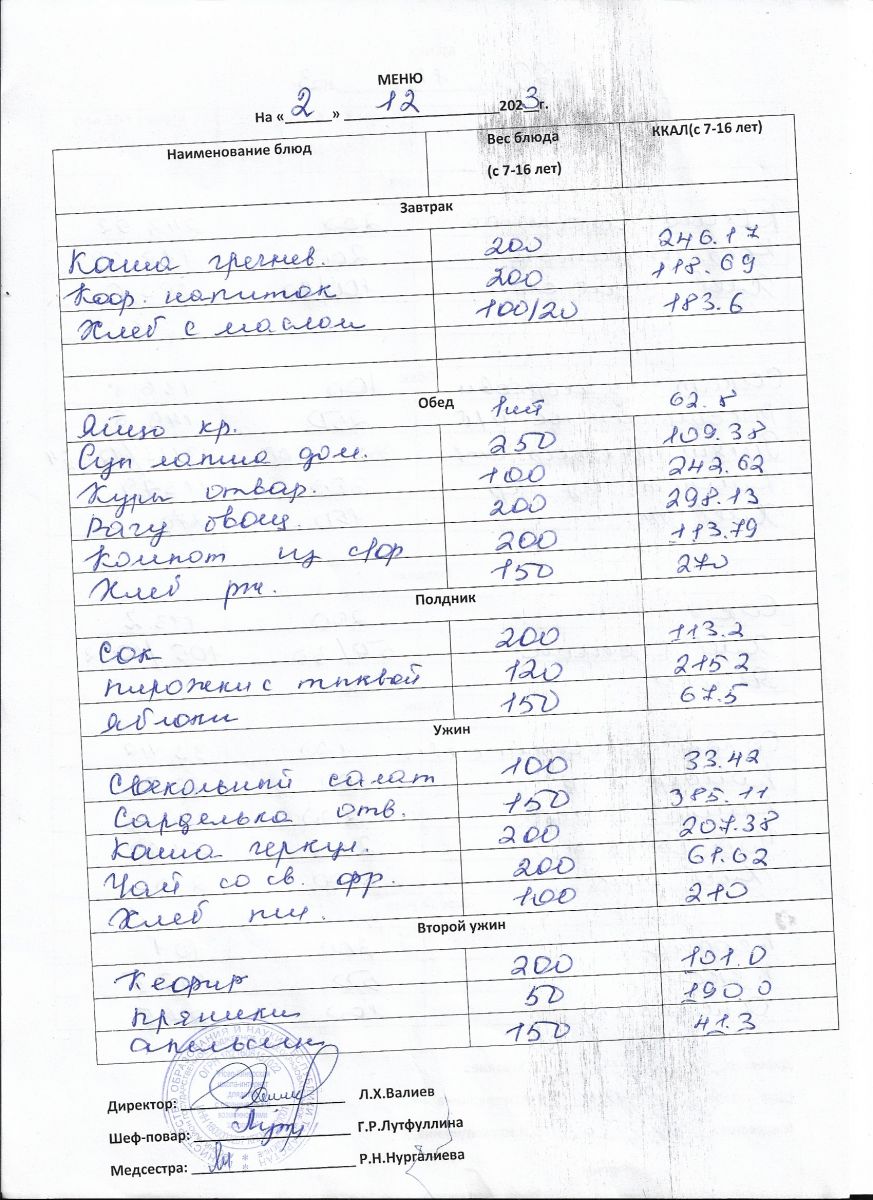 МЕНЮ
На «2» 12 2023г.
Наименование блюд Вес блюда (с 7-16 лет) ККАЛ(с 7-16 лет)
Завтрак
Каша гречнев. 200 246.17
Коф. напиток 200 118.69
Хлеб с маслом 100/20 183.6
Обед
Яйцо кр. 1шт 62.8
Суп лапша дом. 250 109.38
Куры отвар. 100 242.62
Рагу овощ. 200 298.13
Компот из с/фр 200 113.79
Хлеб рж. 150 270
Полдник
Сок 200 113.2
пирожки с тыквой 120 2152
яблоки 150 67.5
Ужин
Свекольный салат 100 33.42
Сарделька отв. 150 385.11
Каша геркул. 200 207.38
Чай со св. фр. 200 61.62
Хлеб пш. 100 210
Второй ужин
Кефир 200 101.0
пряники 50 190.0
апельсин 150 41.3
Директор: Л.Х.Валиев
Шеф-повар: Г.Р.Лутфуллина
Медсестра: Р.Н.Нургалиева